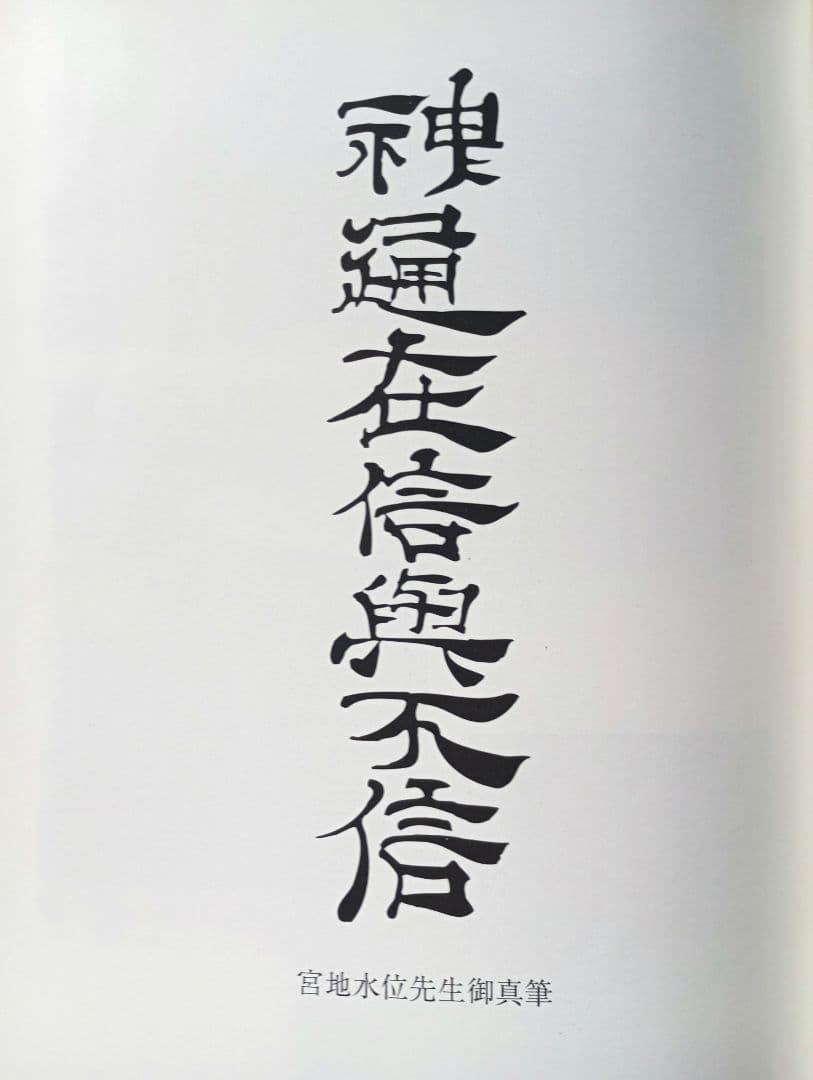 神通在信與不信
宮地水位先生御真筆